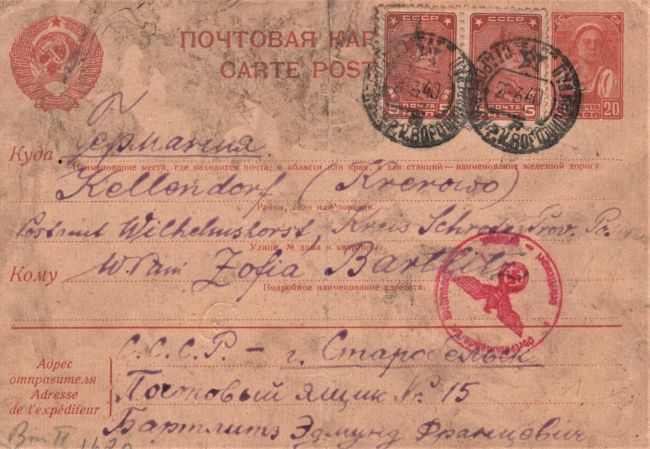 ПОЧТОВАЯ КАР
CARTE POST
СССР
ПОЧТА
5 КОП
СССР
ПОЧТА
5 КОП
ПОЧТА
20 КОП
Германия
Куда
Наименование места, где находится почта, и области или края, а для станций — наименование железной дороги
Kellendorf (Krerowo)
Район, село или деревня.
Postamt Wilhelmshorst, Kreis Schroda, Prov. Po
Улица, № дома и квартиры.
Кому
WPani Zofia Bartlitz
Подробное наименование адресата.
Адрес отправителя
Adresse de l'expéditeur
С.С.С.Р. – г. Старобельск
Почтовый ящик № 15
Бартлитз Эдмунд Францевич